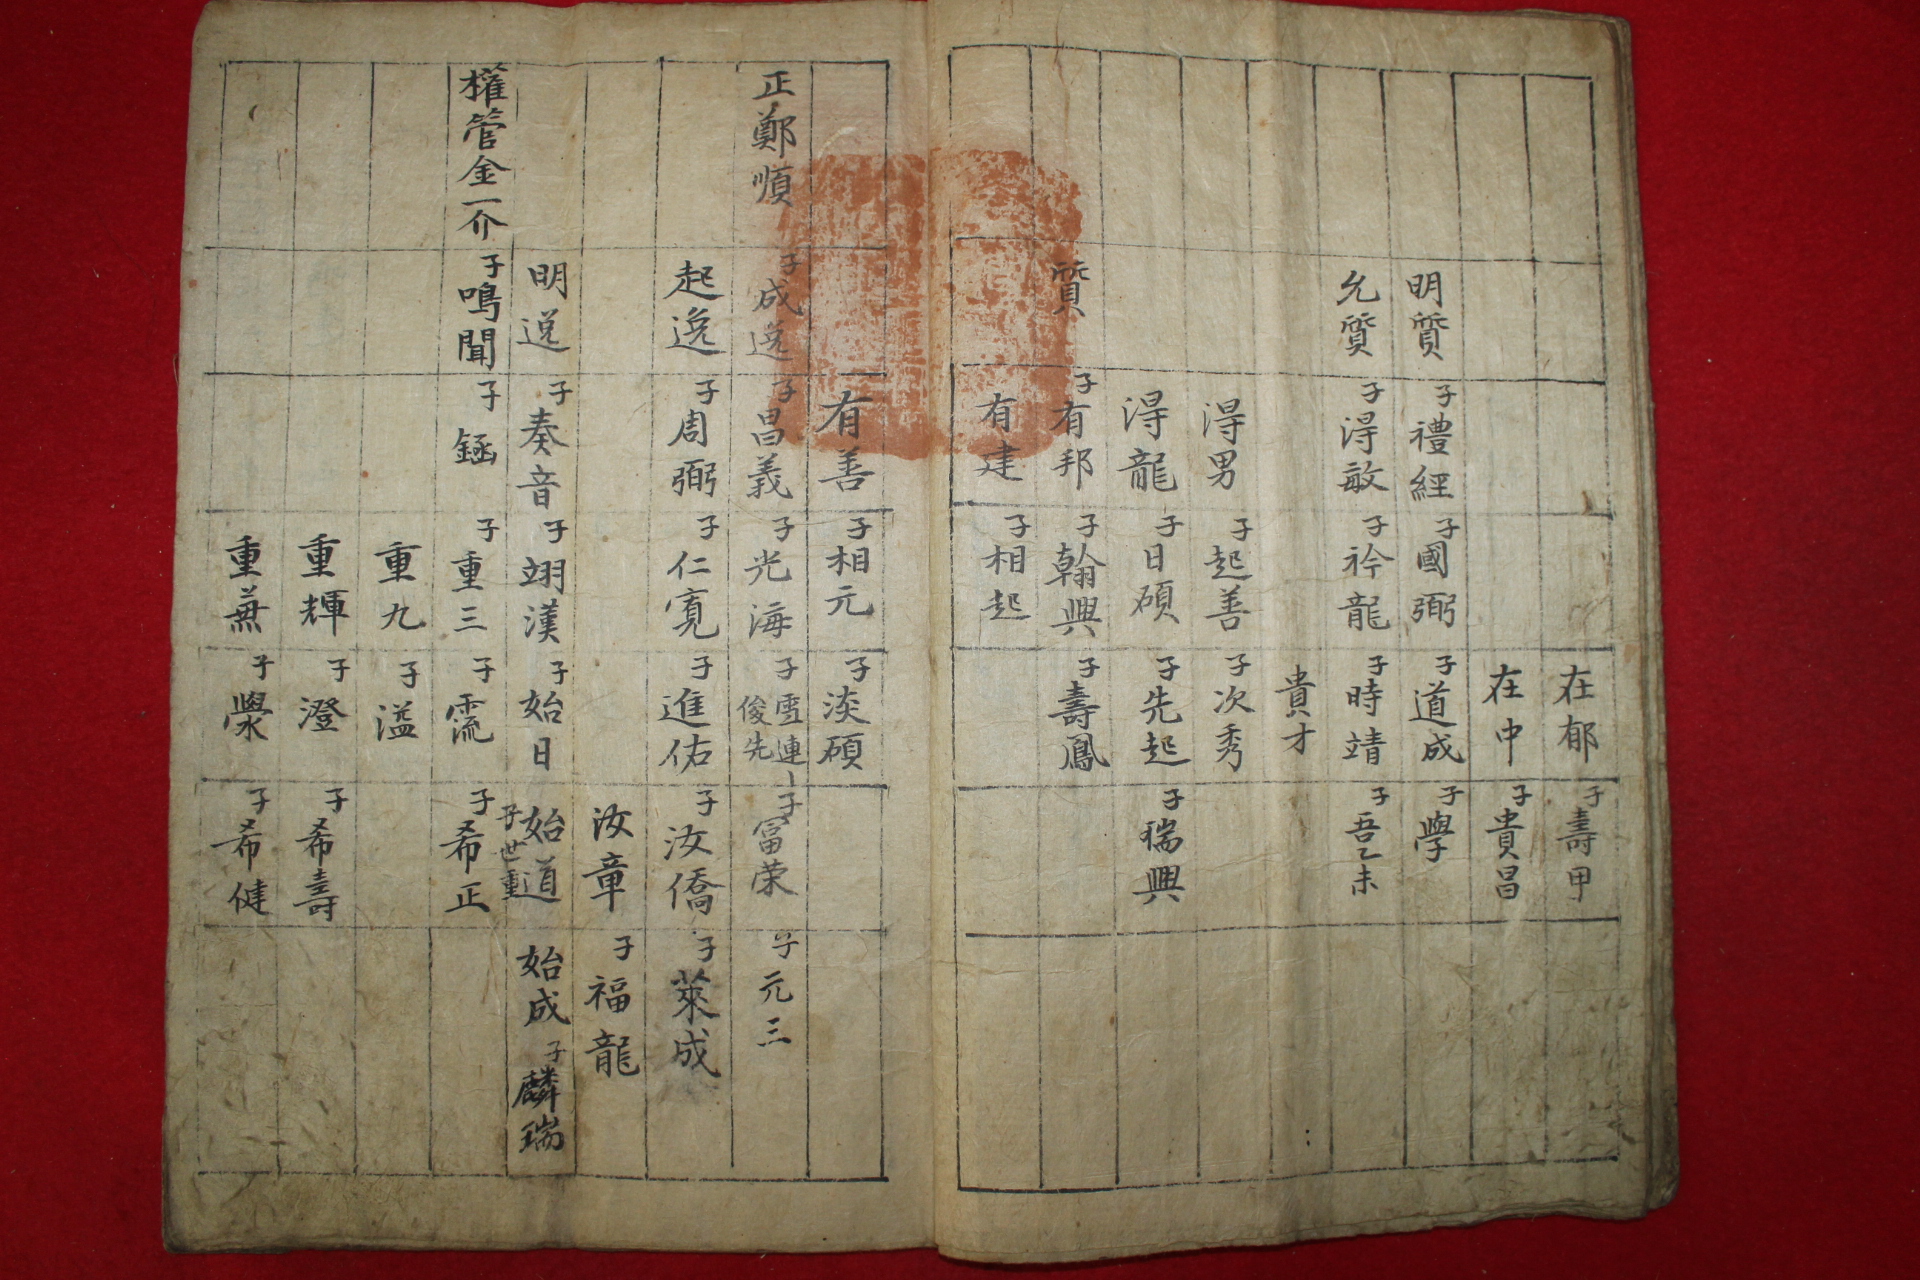 在郁 子壽甲
在中 子貴昌
明質 子禮經 子國弼 子道成 子學
允質 子得敏 子衿龍 子時靖 子吾乙未
貴才
得男 子起善 子次秀
得龍 子日碩 子先起 子瑞興
質 子有邦 子翰興 子壽鳳
有建 子相起
有善 子相元 子淡碩
正鄭順 子成逸 子昌義 子光海 子雲連 俊先 子富荣 子元三
起逸 子周弼 子仁寬 子進佑 子汝僑 子萊成
汝章 子福龍
明逸 子奏音 子翊漢 子始日 始道 子世重 始成 子麟瑞
權管金一介 子鳴聞 子 子重三 子霛 子希正
重九 子溢
重輝 子澄 子希壽
重蕪 子澩 子希健